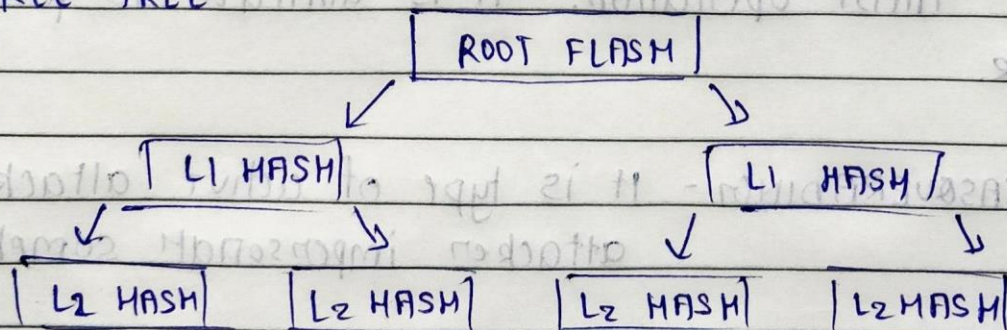 TREE
ROOT FLASH
L1 HASH L1 HASH
L2 HASH L2 HASH L2 HASH L2 HASH